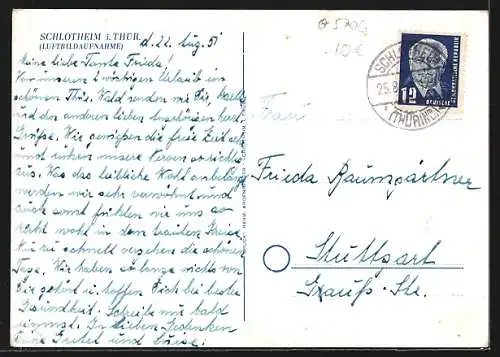 SCHLOTHEIM i. THÜR.
(LUFTBILDAUFNAHME)
d. 22. Aug. 51
Meine liebe Tante Frieda!
Von unserem 2 wöchigen Urlaub im
schönen Thür. Wald senden wir Dir,
und den anderen lieben Angehörigen herzl.
Grüße. Wir genießen die freie Zeit sehr
und ruhen unsere Nerven
aus. Was das leibliche Wohl anbelangt
werden wir sehr verwöhnt und
auch sonst fühlen wir uns so
recht wohl in dem
Nur zu schnell vergehen die schönen
Tage. Wir haben so lange nichts von
Dir gehört u. hoffen Dich bei bester
Gesundheit. Schreibe mir bald
einmal. In lieben Gedenken
Deine Gretel und
10€
SCHLOTHEIM
25.8.
(THÜRINGEN)
12
DEUTSCHE
Frau
Frieda Baumgärtner
Stuttgart
Str.